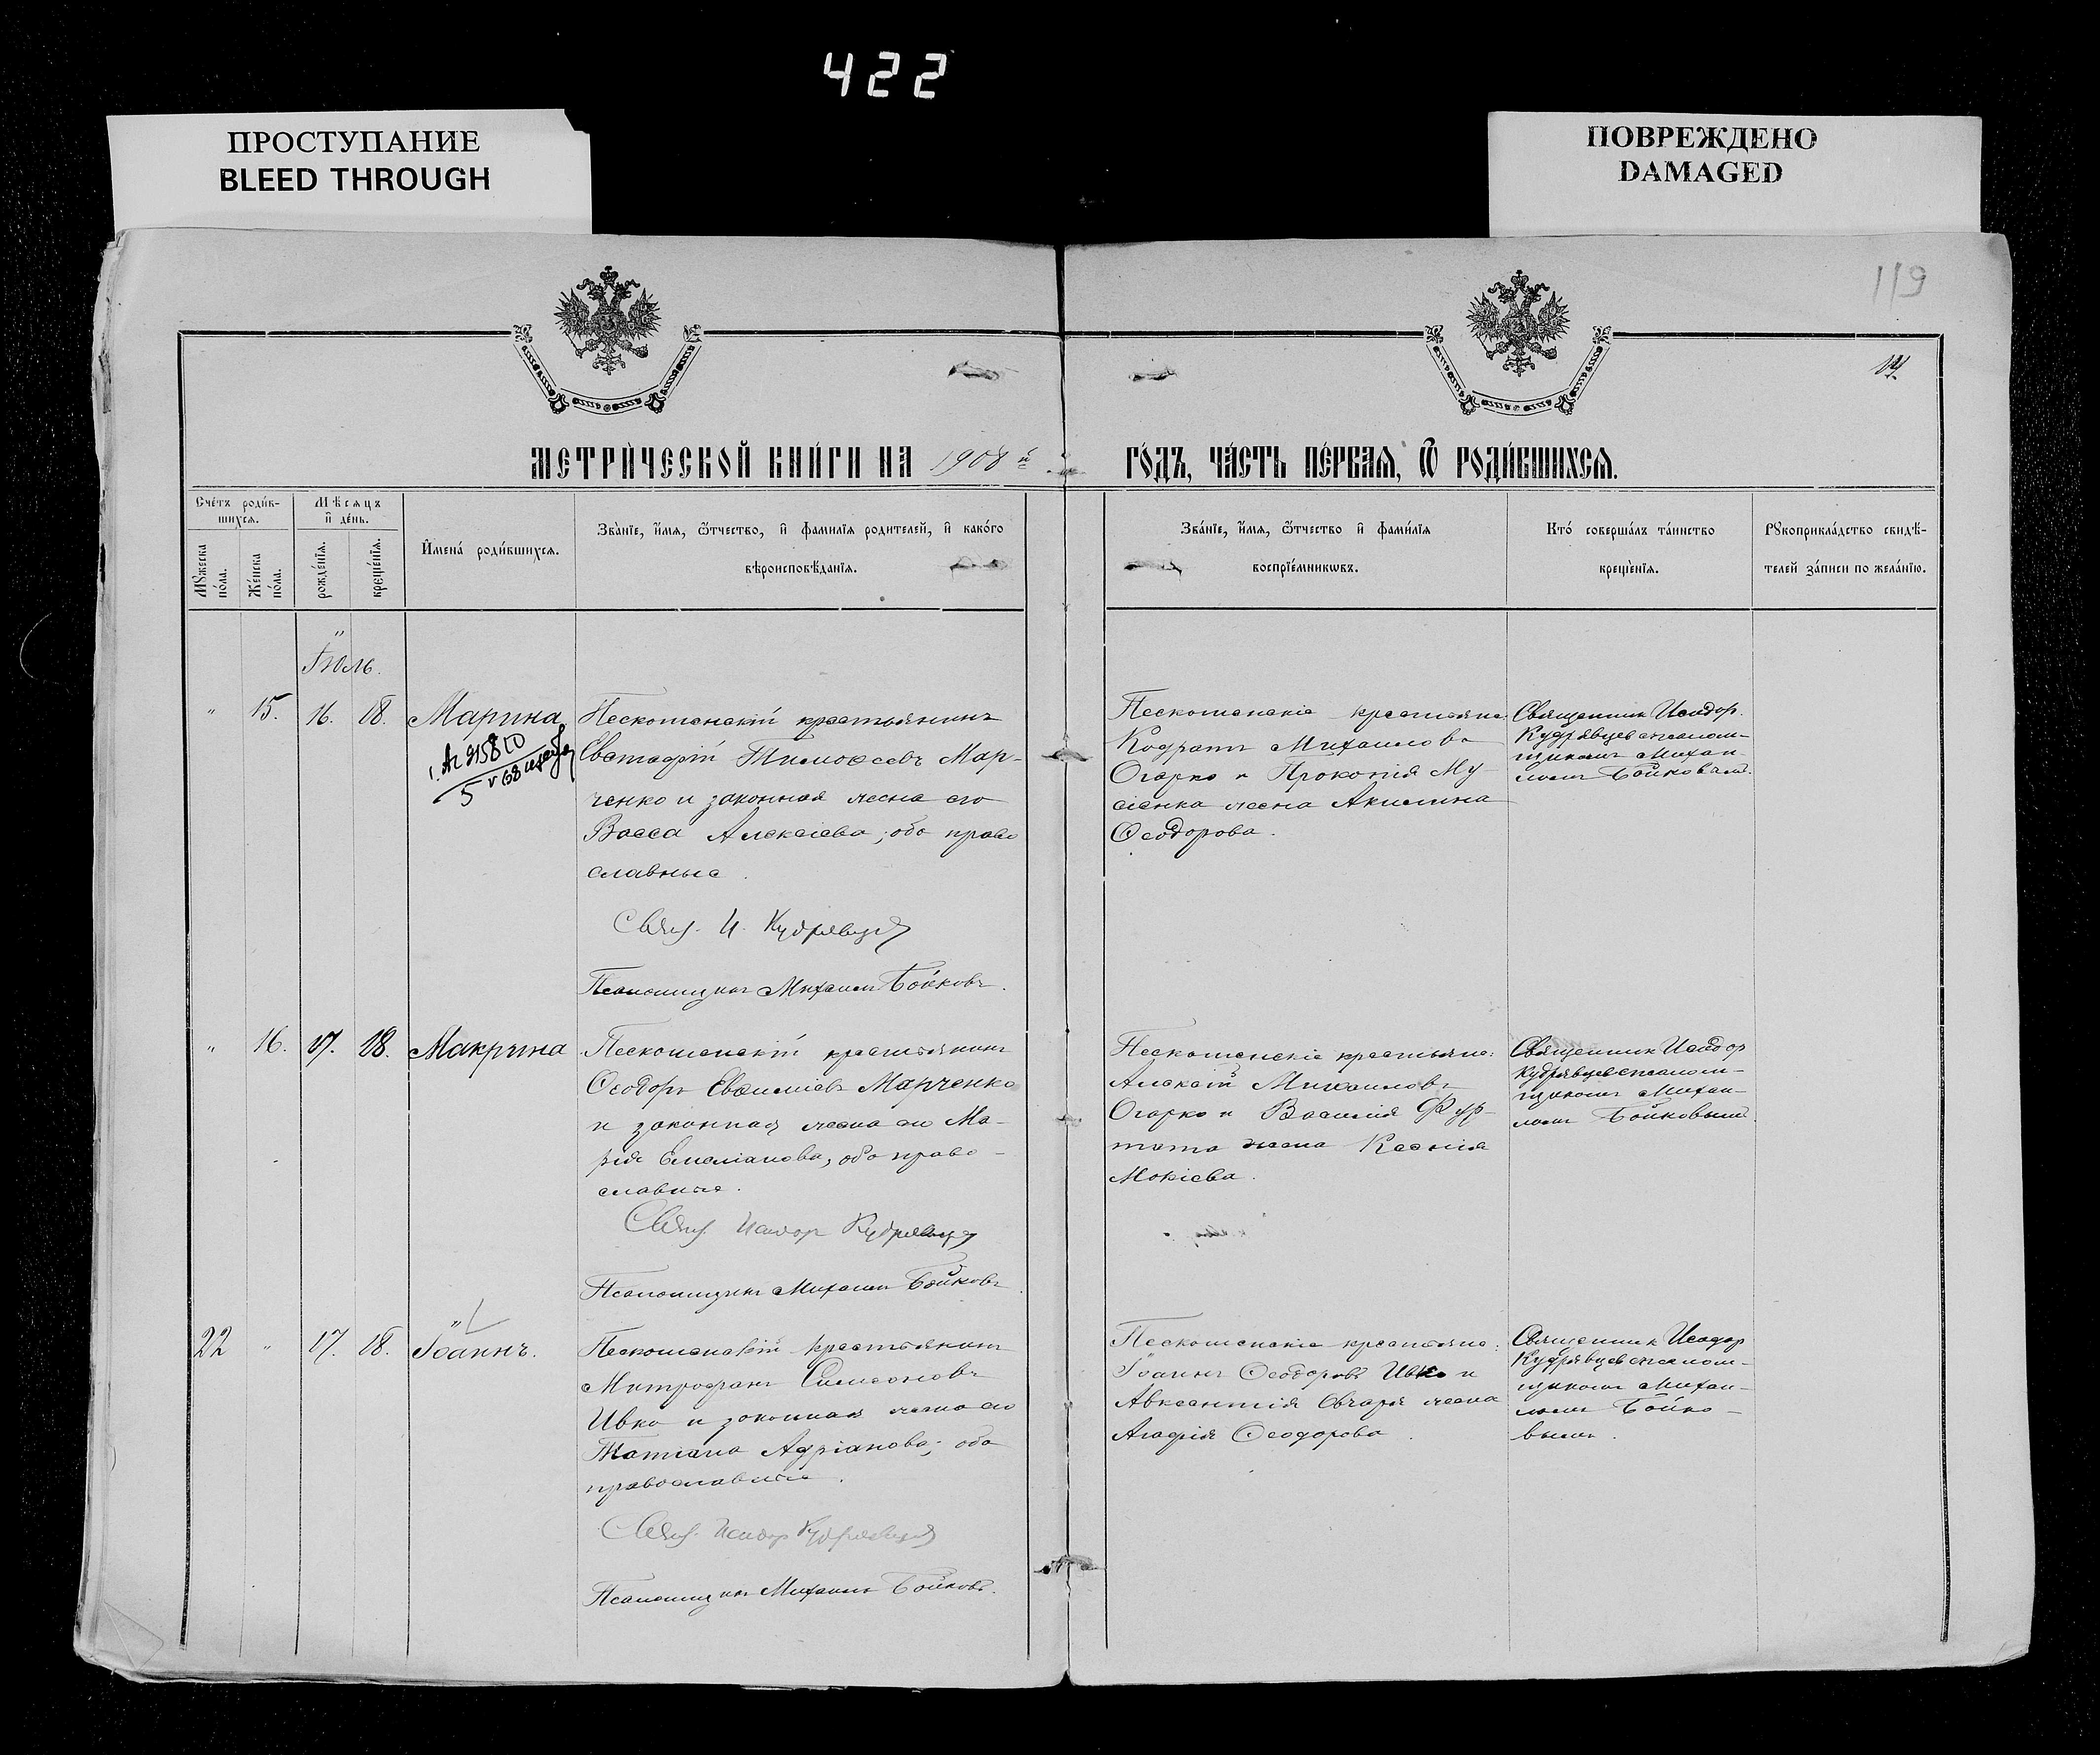 422
ПРОСТУПАНИЕ
BLEED THROUGH
ПОВРЕЖДЕНО
DAMAGED
119
МЕТРИ́ЧЕСКОЙ КНИ́ГИ НА 1908 й
ГО́ДЪ, ЧА́СТЬ ПЕ́РВАЯ, Ѿ РОДИ́ВШИХСЯ.
Сче́тъ роди́в-
шихся.
Мѣсяцъ
и де́нь.
Имена́ роди́вшихся.
Зва́нїе, и́мя, ѻ́тчество, и фамилїя родителей, и како́го
вѣроисповѣ́данїя.
Мꙋжеска по́ла.
Же́нска по́ла.
рожде́нїя.
креще́нїя.
Зва́нїе, и́мя, ѻ́тчество и фами́лїя
воспрїе́мникѡвъ.
Кто́ соверша́лъ та́инство
креще́нїя.
Рꙋкоприкла́дство свидѣ́-
телей за́писи по жела́нїю.
Іюль.
" 15. 16. 18. Марина
Пескошенскій крестьянинъ
Евстафій Тимоѳеевъ Мар-
ченко и законная жена его
Васса Алексіева; оба право
славные.
Свящ. И. Кудрявцев
Псаломщикъ Михаилъ Бойковъ.
Пескошенскіе крестьяне:
Кодратъ Михаиловъ
Огарко и Прокопія Му-
сіенка жена Акилина
Ѳеодорова.
Священникъ Исидор.
Кудрявцев с псалом-
щикомъ Михаи-
ломъ Бойковым.
" 16. 17. 18. Макрина
Пескошенскій крестьянинъ
Ѳеодоръ Евѳиміевъ Марченко
и законная жена его Ма-
рія Емеліанова, оба право-
славные.
Свящ. Исидор Кудрявцев
Псаломщикъ Михаилъ Бойковъ
Пескошенскіе крестьяне:
Алексій Михаиловъ
Огарко и Василія Фур-
тата жена Ксенія
Мокіева.
Священникъ Исидор
Кудрявцев с псалом-
щикомъ Михаи-
ломъ Бойковым.
22 " 17. 18. Іоаннъ.
Пескошенскій крестьянинъ
Митрофанъ Симеоновъ
Ивко и законная жена его
Татіана Адріанова; оба
православные.
Свящ. Исидор Кудрявцев
Псаломщикъ Михаилъ Бойковъ.
Пескошенскіе крестьяне:
Іоаннъ Ѳеодоровъ Ивко и
Авксентія Овчаря жена
Агафія Ѳеодорова.
Священникъ Исидор
Кудрявцев с псалом-
щикомъ Михаи-
ломъ Бойко-
вымъ.